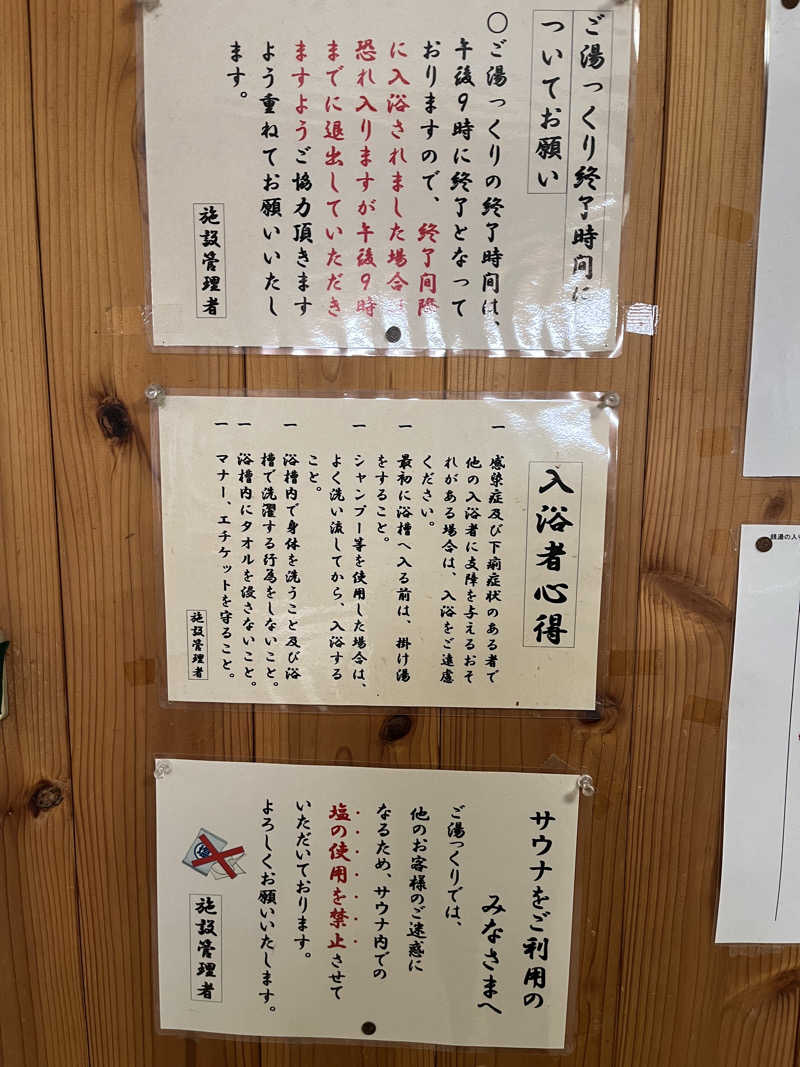 ご湯っくり終了時間に
ついてお願い
〇ご湯っくりの終了時間は、
午後9時に終了となって
おりますので、終了間際
に入浴されました場合は
恐れ入りますが午後9時
までに退出していただき
ますようご協力頂きます
よう重ねてお願いいたし
ます。
施設管理者
入浴者心得
一 感染症及び下痢症状のある者で
他の入浴者に支障を与えるおそ
れがある場合は、入浴をご遠慮
ください。
一 最初に浴槽へ入る前は、掛け湯
をすること。
一 シャンプー等を使用した場合は、
よく洗い流してから、入浴する
こと。
一 浴槽内で身体を洗うこと及び浴
槽で洗濯する行為をしないこと。
一 浴槽内にタオルを浸さないこと。
一 マナー、エチケットを守ること。
施設管理者
サウナをご利用の
みなさまへ
ご湯っくりでは、
他のお客様のご迷惑に
なるため、サウナ内での
塩の使用を禁止させて
いただいております。
よろしくお願いいたします。
塩
施設管理者
銭湯の人